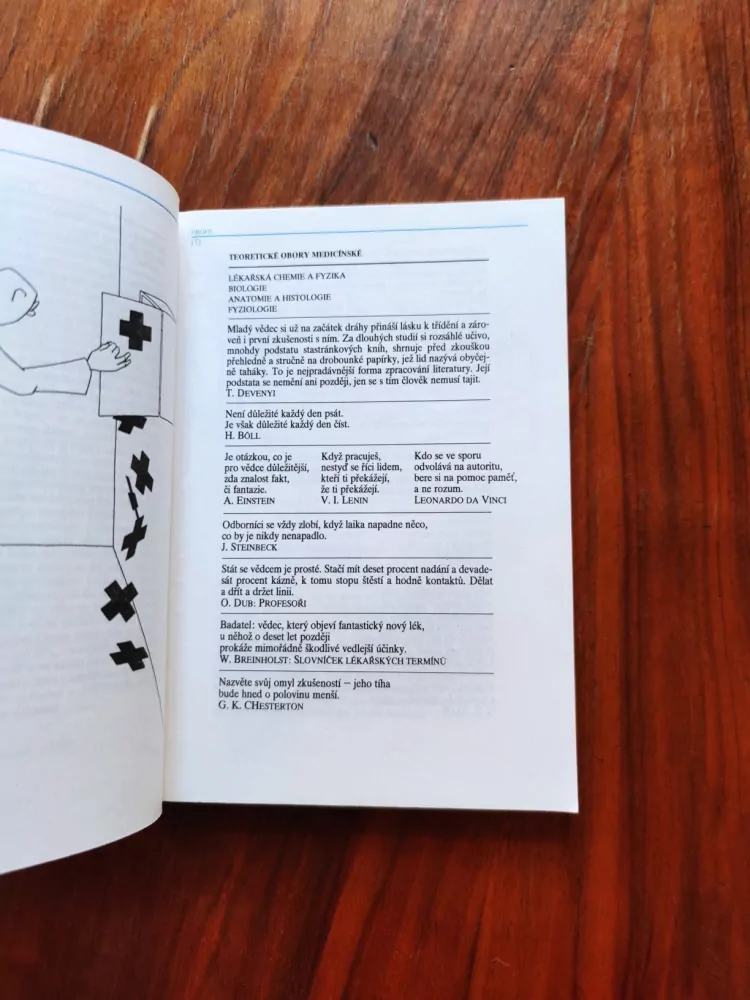 TEORETICKÉ OBORY MEDICÍNSKÉ
LÉKAŘSKÁ CHEMIE A FYZIKA
BIOLOGIE
ANATOMIE A HISTOLOGIE
FYZIOLOGIE
Mladý vědec si už na začátek dráhy přináší lásku k třídění a záro-
veň i první zkušenosti s ním. Za dlouhých studií si rozsáhlé učivo,
mnohdy podstatu stastránkových knih, shrnuje před zkouškou
přehledně a stručně na drobounké papírky, jež lid nazývá obyčej-
ně taháky. To je nejpradávnější forma zpracování literatury. Její
podstata se nemění ani později, jen se s tím člověk nemusí tajit.
T. DEVENYI
Není důležité každý den psát.
Je však důležité každý den číst.
H. BÖLL
Je otázkou, co je
pro vědce důležitější,
zda znalost fakt,
či fantazie.
A. EINSTEIN
Když pracuješ,
nestyď se říci lidem,
kteří ti překážejí,
že ti překážejí.
V. I. LENIN
Kdo se ve sporu
odvolává na autoritu,
bere si na pomoc paměť,
a ne rozum.
LEONARDO DA VINCI
Odborníci se vždy zlobí, když laika napadne něco,
co by je nikdy nenapadlo.
J. STEINBECK
Stát se vědcem je prosté. Stačí mít deset procent nadání a devade-
sát procent kázně, k tomu stopu štěstí a hodně kontaktů. Dělat
a dřít a držet linii.
O. DUB: PROFESOŘI
Badatel: vědec, který objeví fantastický nový lék,
u něhož o deset let později
prokáže mimořádně škodlivé vedlejší účinky.
W. BREINHOLST: SLOVNÍČEK LÉKAŘSKÝCH TERMÍNŮ
Nazvěte svůj omyl zkušeností – jeho tíha
bude hned o polovinu menší.
G. K. CHESTERTON